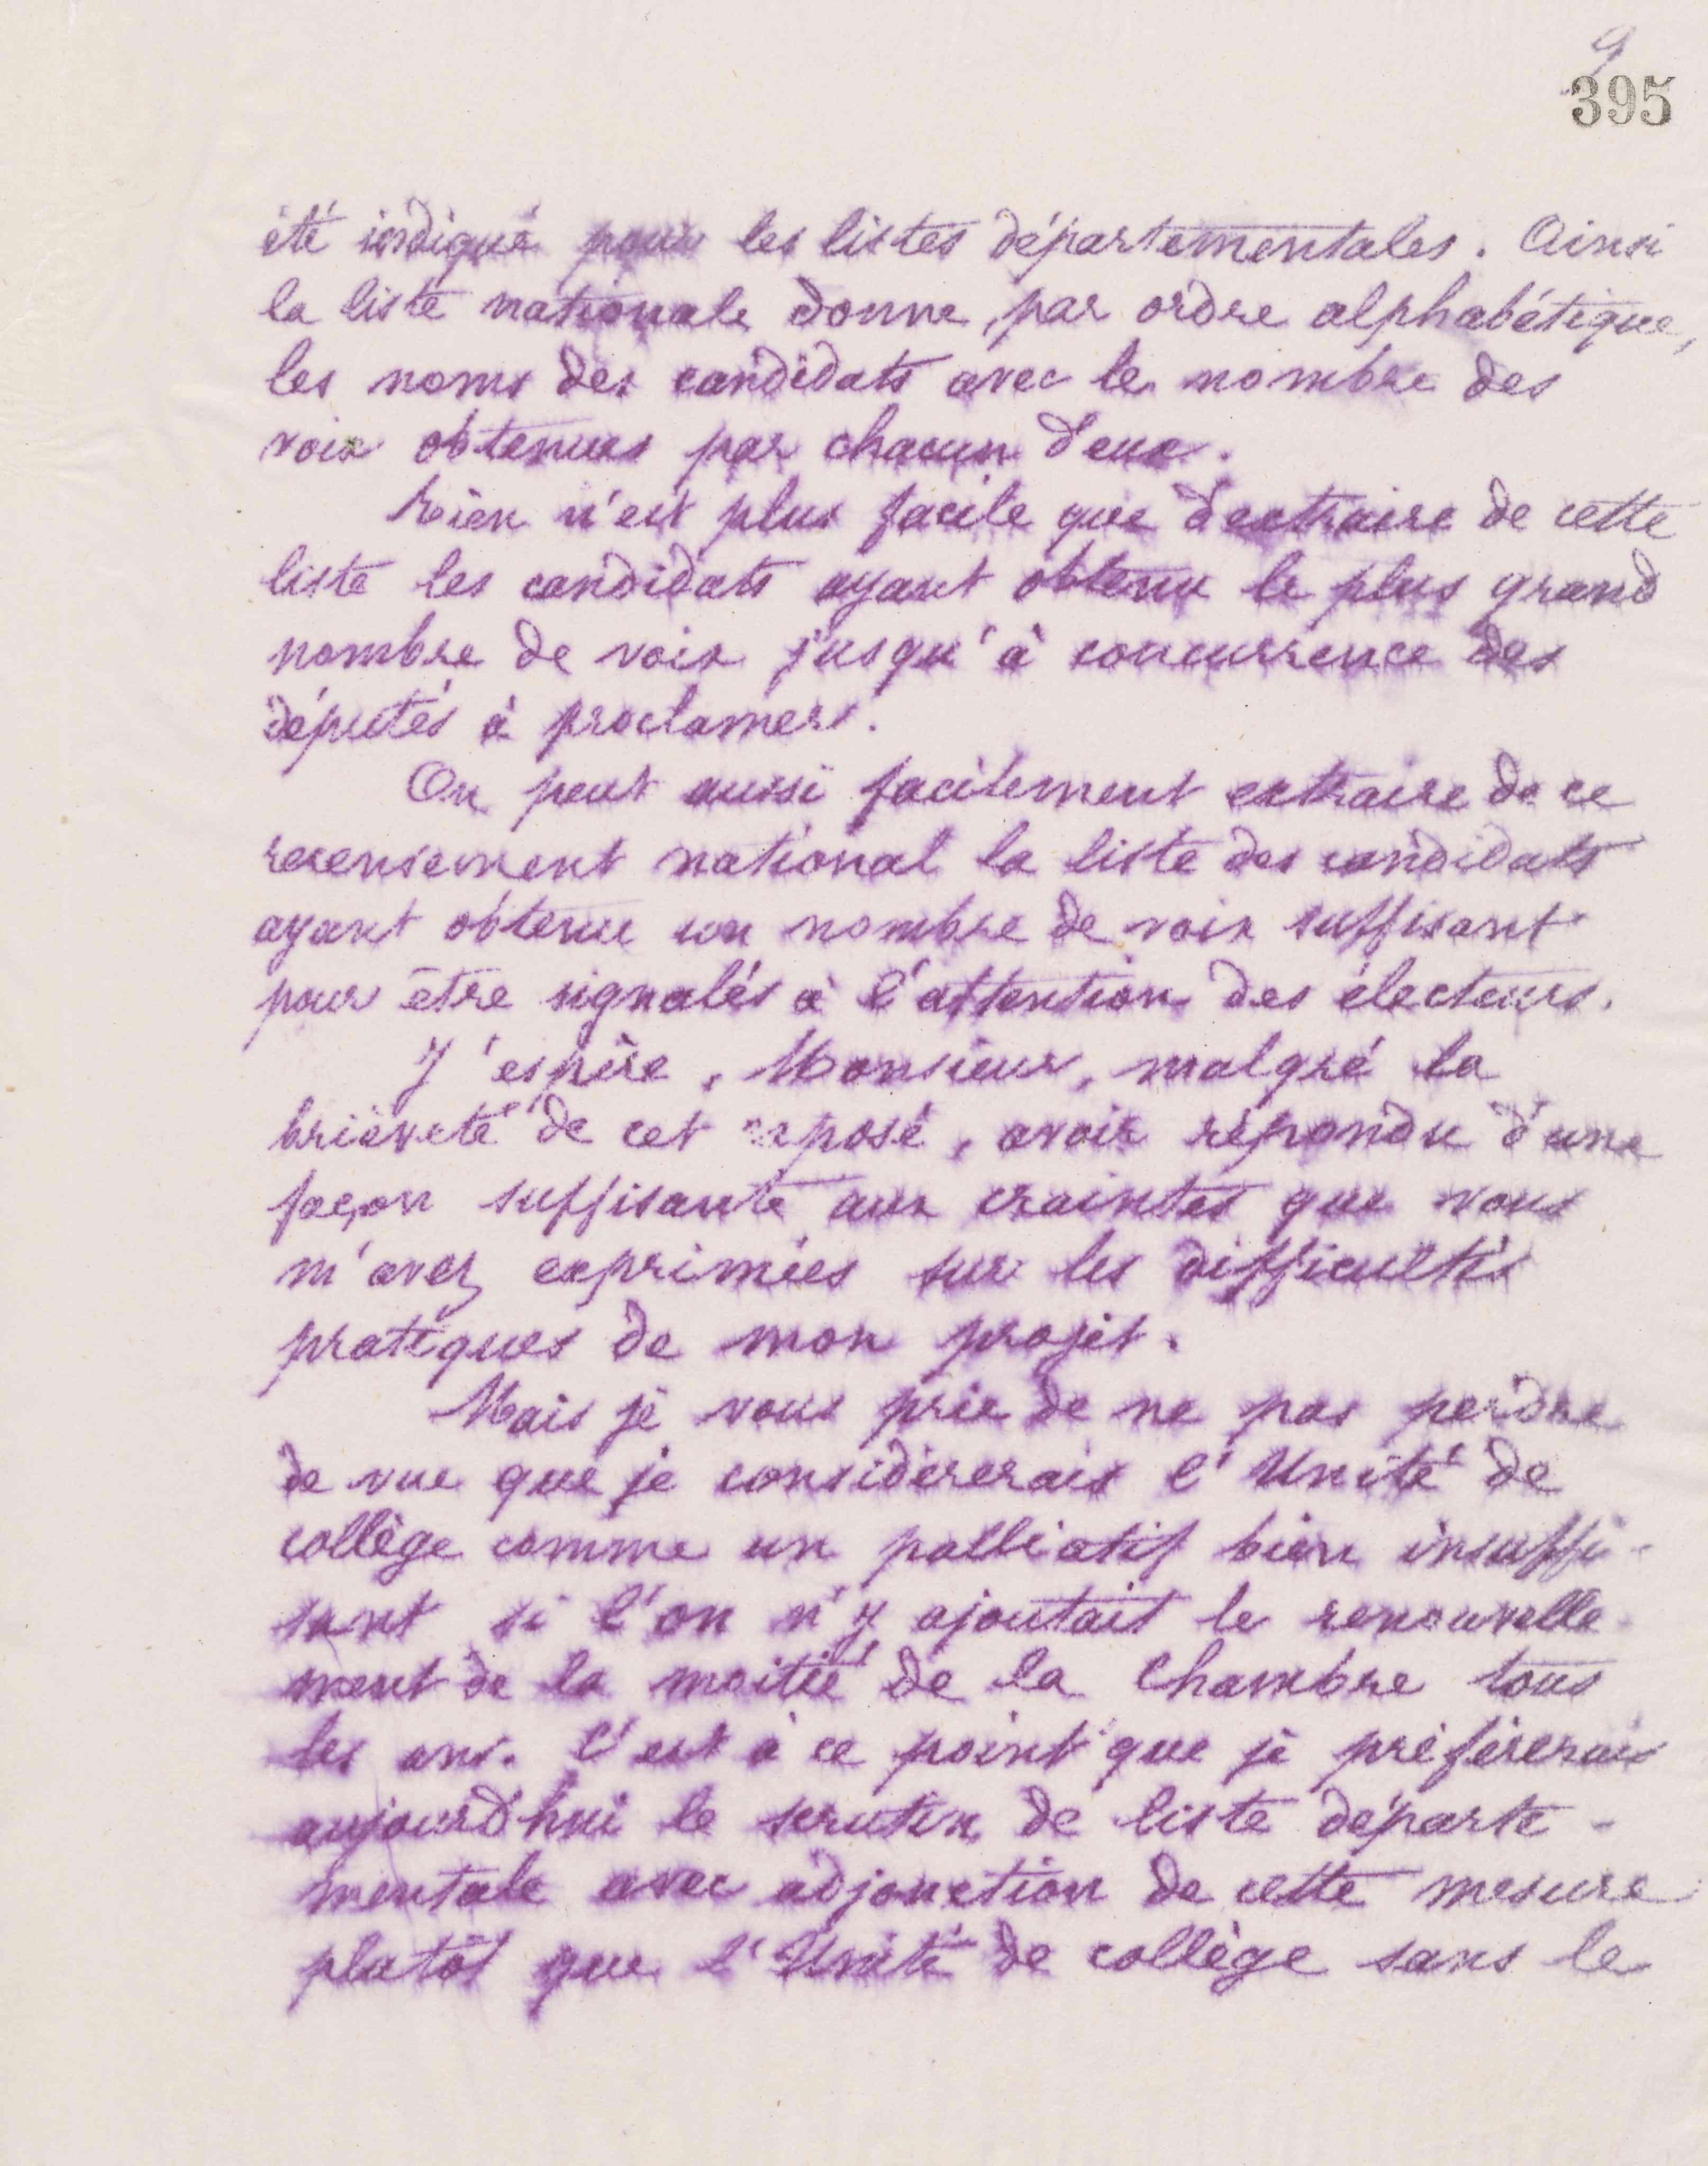 9
395
été indiqué pour les listes départementales. Ainsi
la liste nationale donne, par ordre alphabétique,
les noms des candidats avec le nombre des
voix obtenues par chacun d'eux.
Rien n'est plus facile que d'extraire de cette
liste les candidats ayant obtenu le plus grand
nombre de voix jusqu'à concurrence des
députés à proclamer.
On peut aussi facilement extraire de ce
recensement national la liste des candidats
ayant obtenu un nombre de voix suffisant
pour être signalés à l'attention des électeurs.
J'espère, Monsieur, malgré la
brièveté de cet exposé, avoir répondu d'une
façon suffisante aux craintes que vous
m'avez exprimées sur les difficultés
pratiques de mon projet.
Mais je vous prie de ne pas perdre
de vue que je considèrerais l'Unité de
collège comme un palliatif bien insuffi-
sant si l'on n'y ajoutait le renouvelle-
ment de la moitié de la Chambre tous
les ans. C'est à ce point que je préfèrerais
aujourd'hui le scrutin de liste départe-
mentale avec adjonction de cette mesure
plutôt que l'Unité de collège sans le